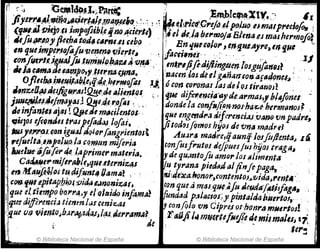 Gemidos I. Parte,
fi yerra al niño, acierta le mançebo
(que al viejo es impossible q̃ no acierte)
de su arco y flecha toda carne es cebo
en que imperioso su veneno vierta.
con suerte igual su tumulo baxa à vna
la la cama de campo, y tierna cuna,
O flecha ineuitable, q̃ de hermosas 13
donzellas desfiguras! Que de alientos
juueniles desmayas! Que de rosas
de infantes ajas! Que de macilentos
viejos escondes tras pesadas losas,
sus yerros con igual dolor sangrientos!
resuelta en poluo la comun miseria
huelue à ser de la primer materia.
Cadauer miserable, que eternizas
en Mauseolos tu difunta llama!
con que epitaphios vida canonizas,
que el tiempo borra, y el oluido infama!
que differencia tienen las cenizas
que vn viento, barajadas, las derrama?
de
Emblema XIV. 61
el rico Creso al polvo es mas precioso,
ò el de la hermosa Elena es mas hermoso?
En que color, en que ayre, en que
facciones 15
entre si se distinguen los gusanos?
nacen los de el gañan con açadones,
ò con coronas las de los tiranos?
que differencia ay de armas, y blasones
donde la confusion nos haze hermanos?
que engendra differencias vano vn padre,
si todos somos hijos de vna madre?
Auara madre, q̃ aunq̃ los sustenta, 16
con sus frutos despues sus hijos traga,
y de quanto su amor los alimenta
su tyrana piedad al fin se paga,
ni dexa honor, contentos, vida, renta
con que à mas que à su deuda satisfaga,
fundad palacios, y pintalda huertos,
q̃ con solo vn Cipres os honra muertos!
Tan si la muerte fuesse de mis males, 17
ter-
© Biblioteca Nacional de España
© Biblioteca Nacional de España